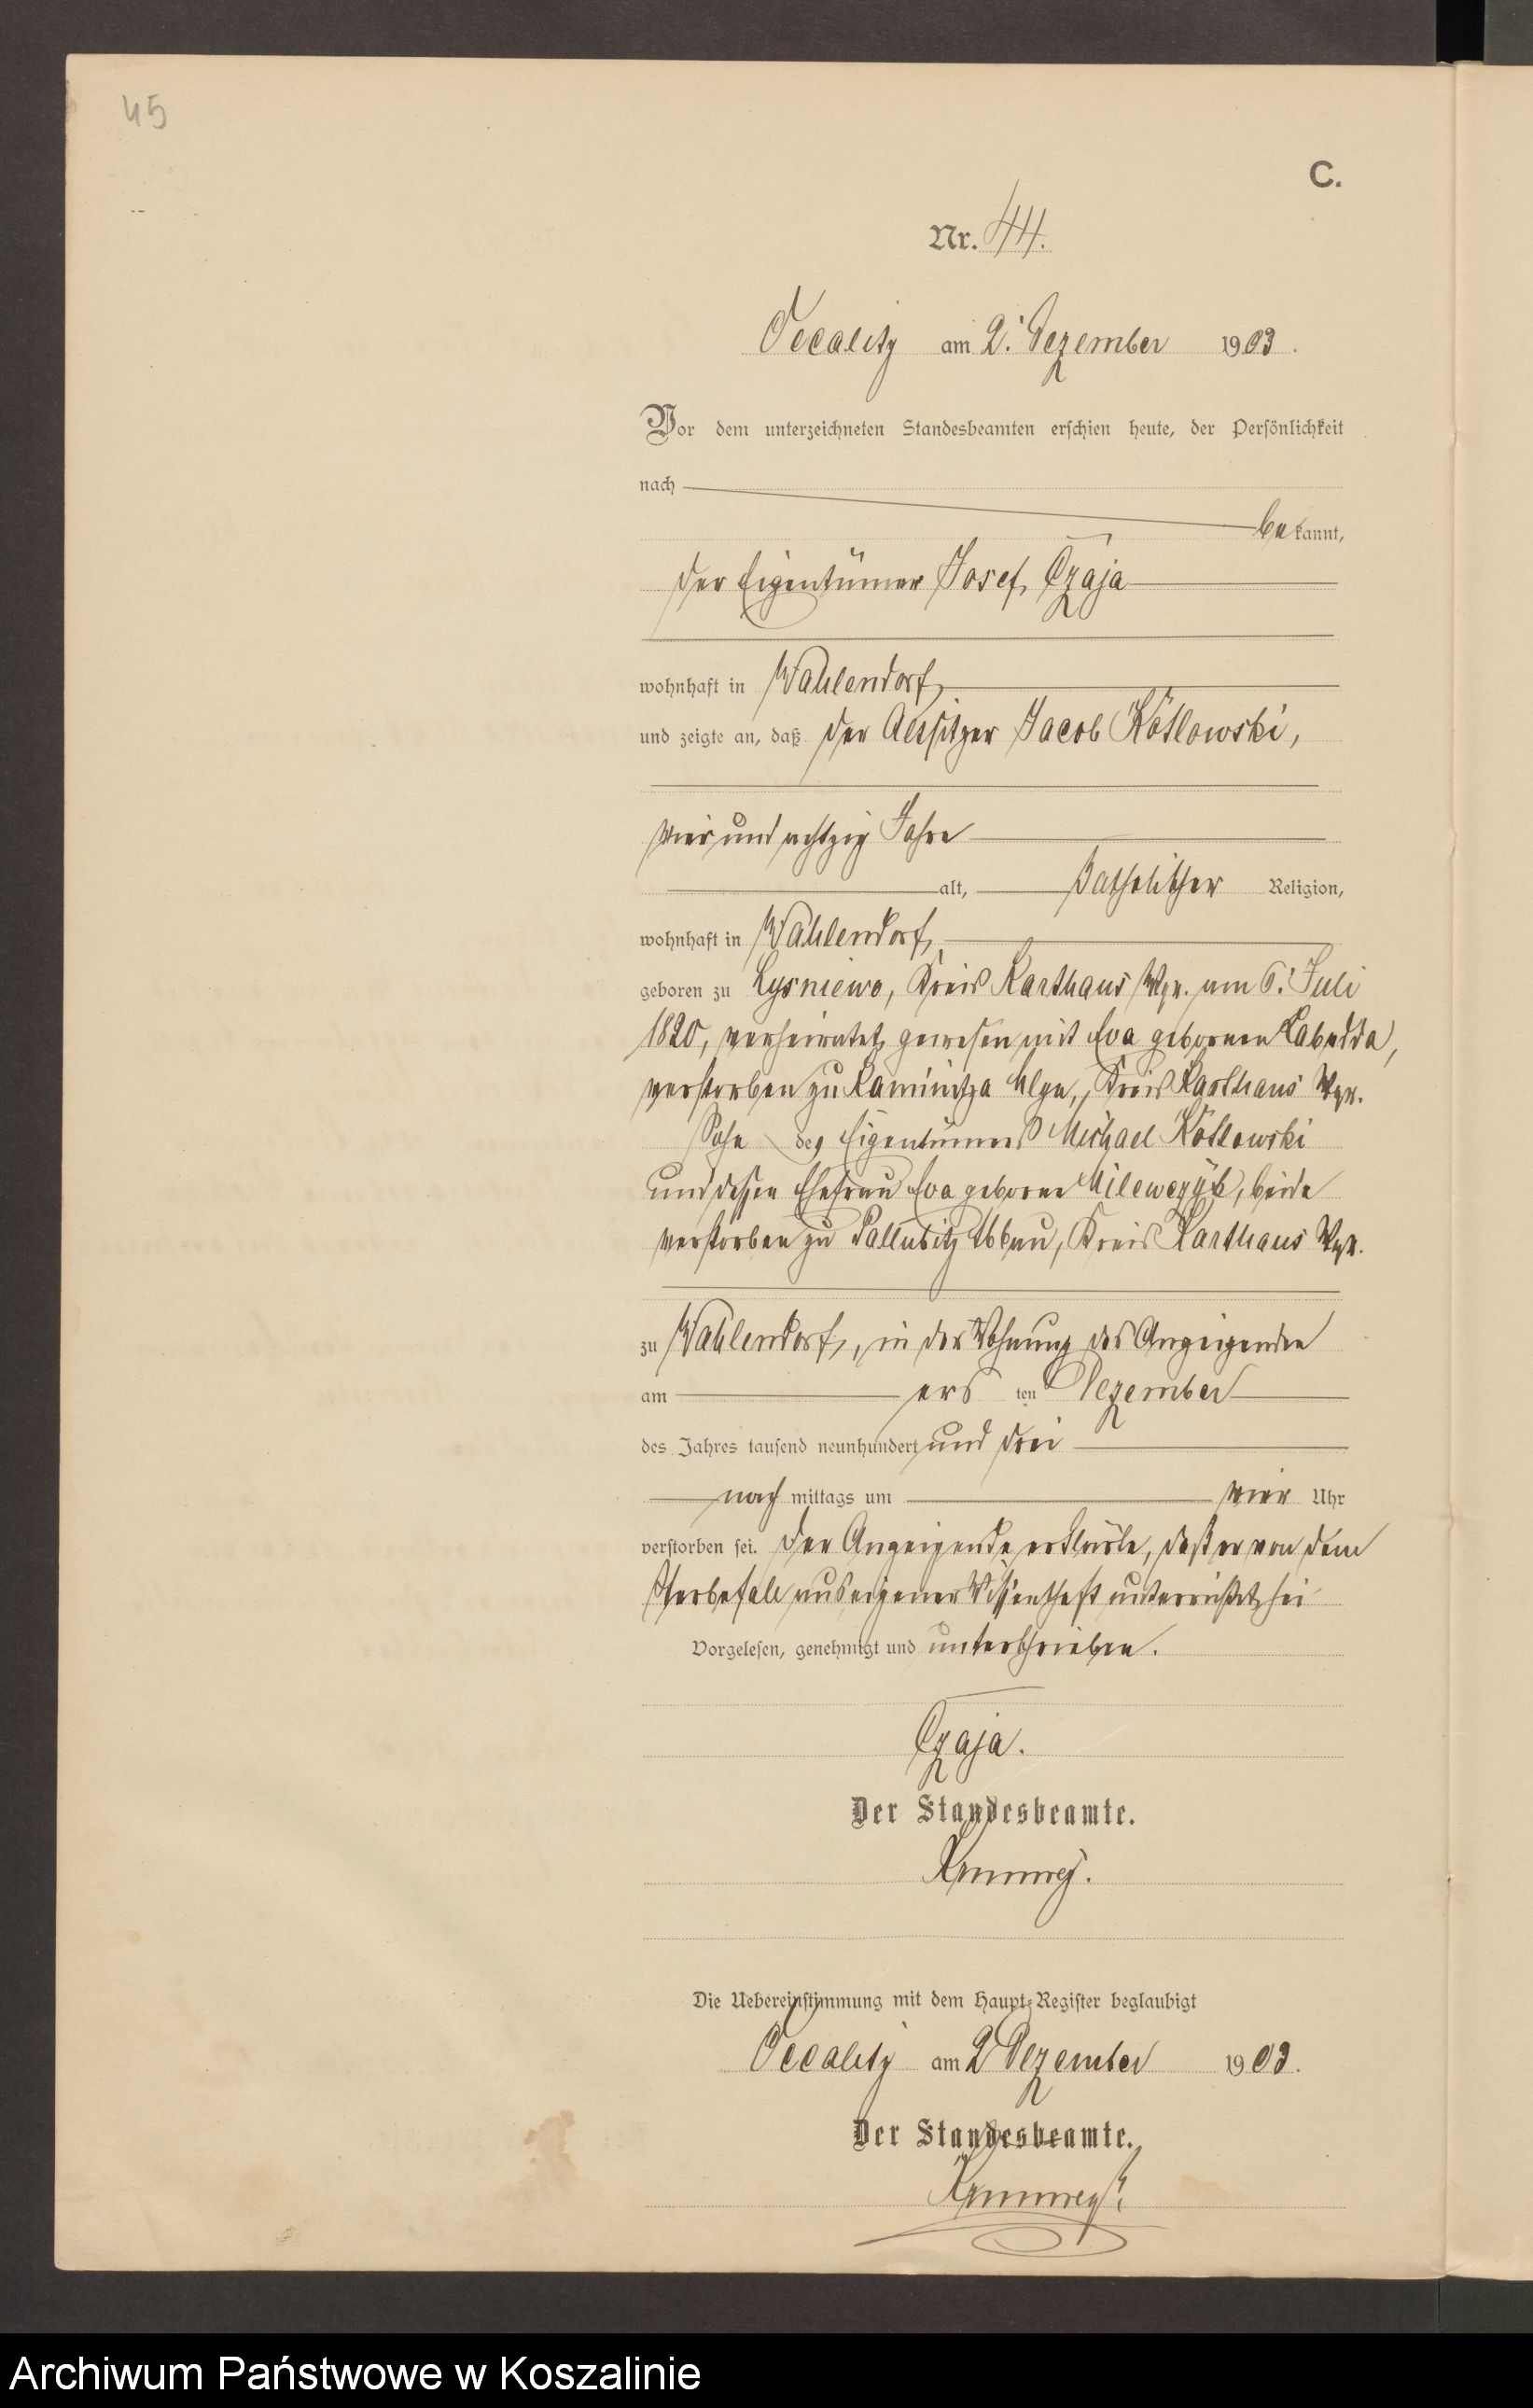 45
C.
Nr. 44.
Oecalitz am 2. Dezember 1903.
Vor dem unterzeichneten Standesbeamten erschien heute, der Persönlichkeit
nach
bekannt,
der Eigentümer Josef Czaja
wohnhaft in Wahlendorf,
und zeigte an, daß der Altsitzer Jacob Kotlowski,
vier und achtzig Jahre
alt, katholischer Religion,
wohnhaft in Wahlendorf,
geboren zu Lysniewo, Kreis Karthaus Wpr. am 6. Juli
1820, verheiratet gewesen mit Eva gebornen Labudda,
verstorben zu Kaminitza Mgn., Kreis Karthaus Wpr.
Sohn des Eigentümers Michael Kotlowski
und dessen Ehefrau Eva geborne Milewczyk, beide
verstorben zu Pallubitz Abbau, Kreis Karthaus Wpr.
zu Wahlendorf, in der Wohnung des Anzeigenden
am ersten Dezember
des Jahres tausend neunhundert und drei
nachmittags um vier Uhr
verstorben sei. Der Anzeigende erklärte, daß er von dem
Sterbefall aus eigener Wissenschaft unterrichtet sei
Vorgelesen, genehmigt und unterschrieben.
Czaja.
Der Standesbeamte.
Die Uebereinstimmung mit dem Haupt-Register beglaubigt
Oecalitz am 2 Dezember 1903.
Der Standesbeamte.
Archiwum Państwowe w Koszalinie